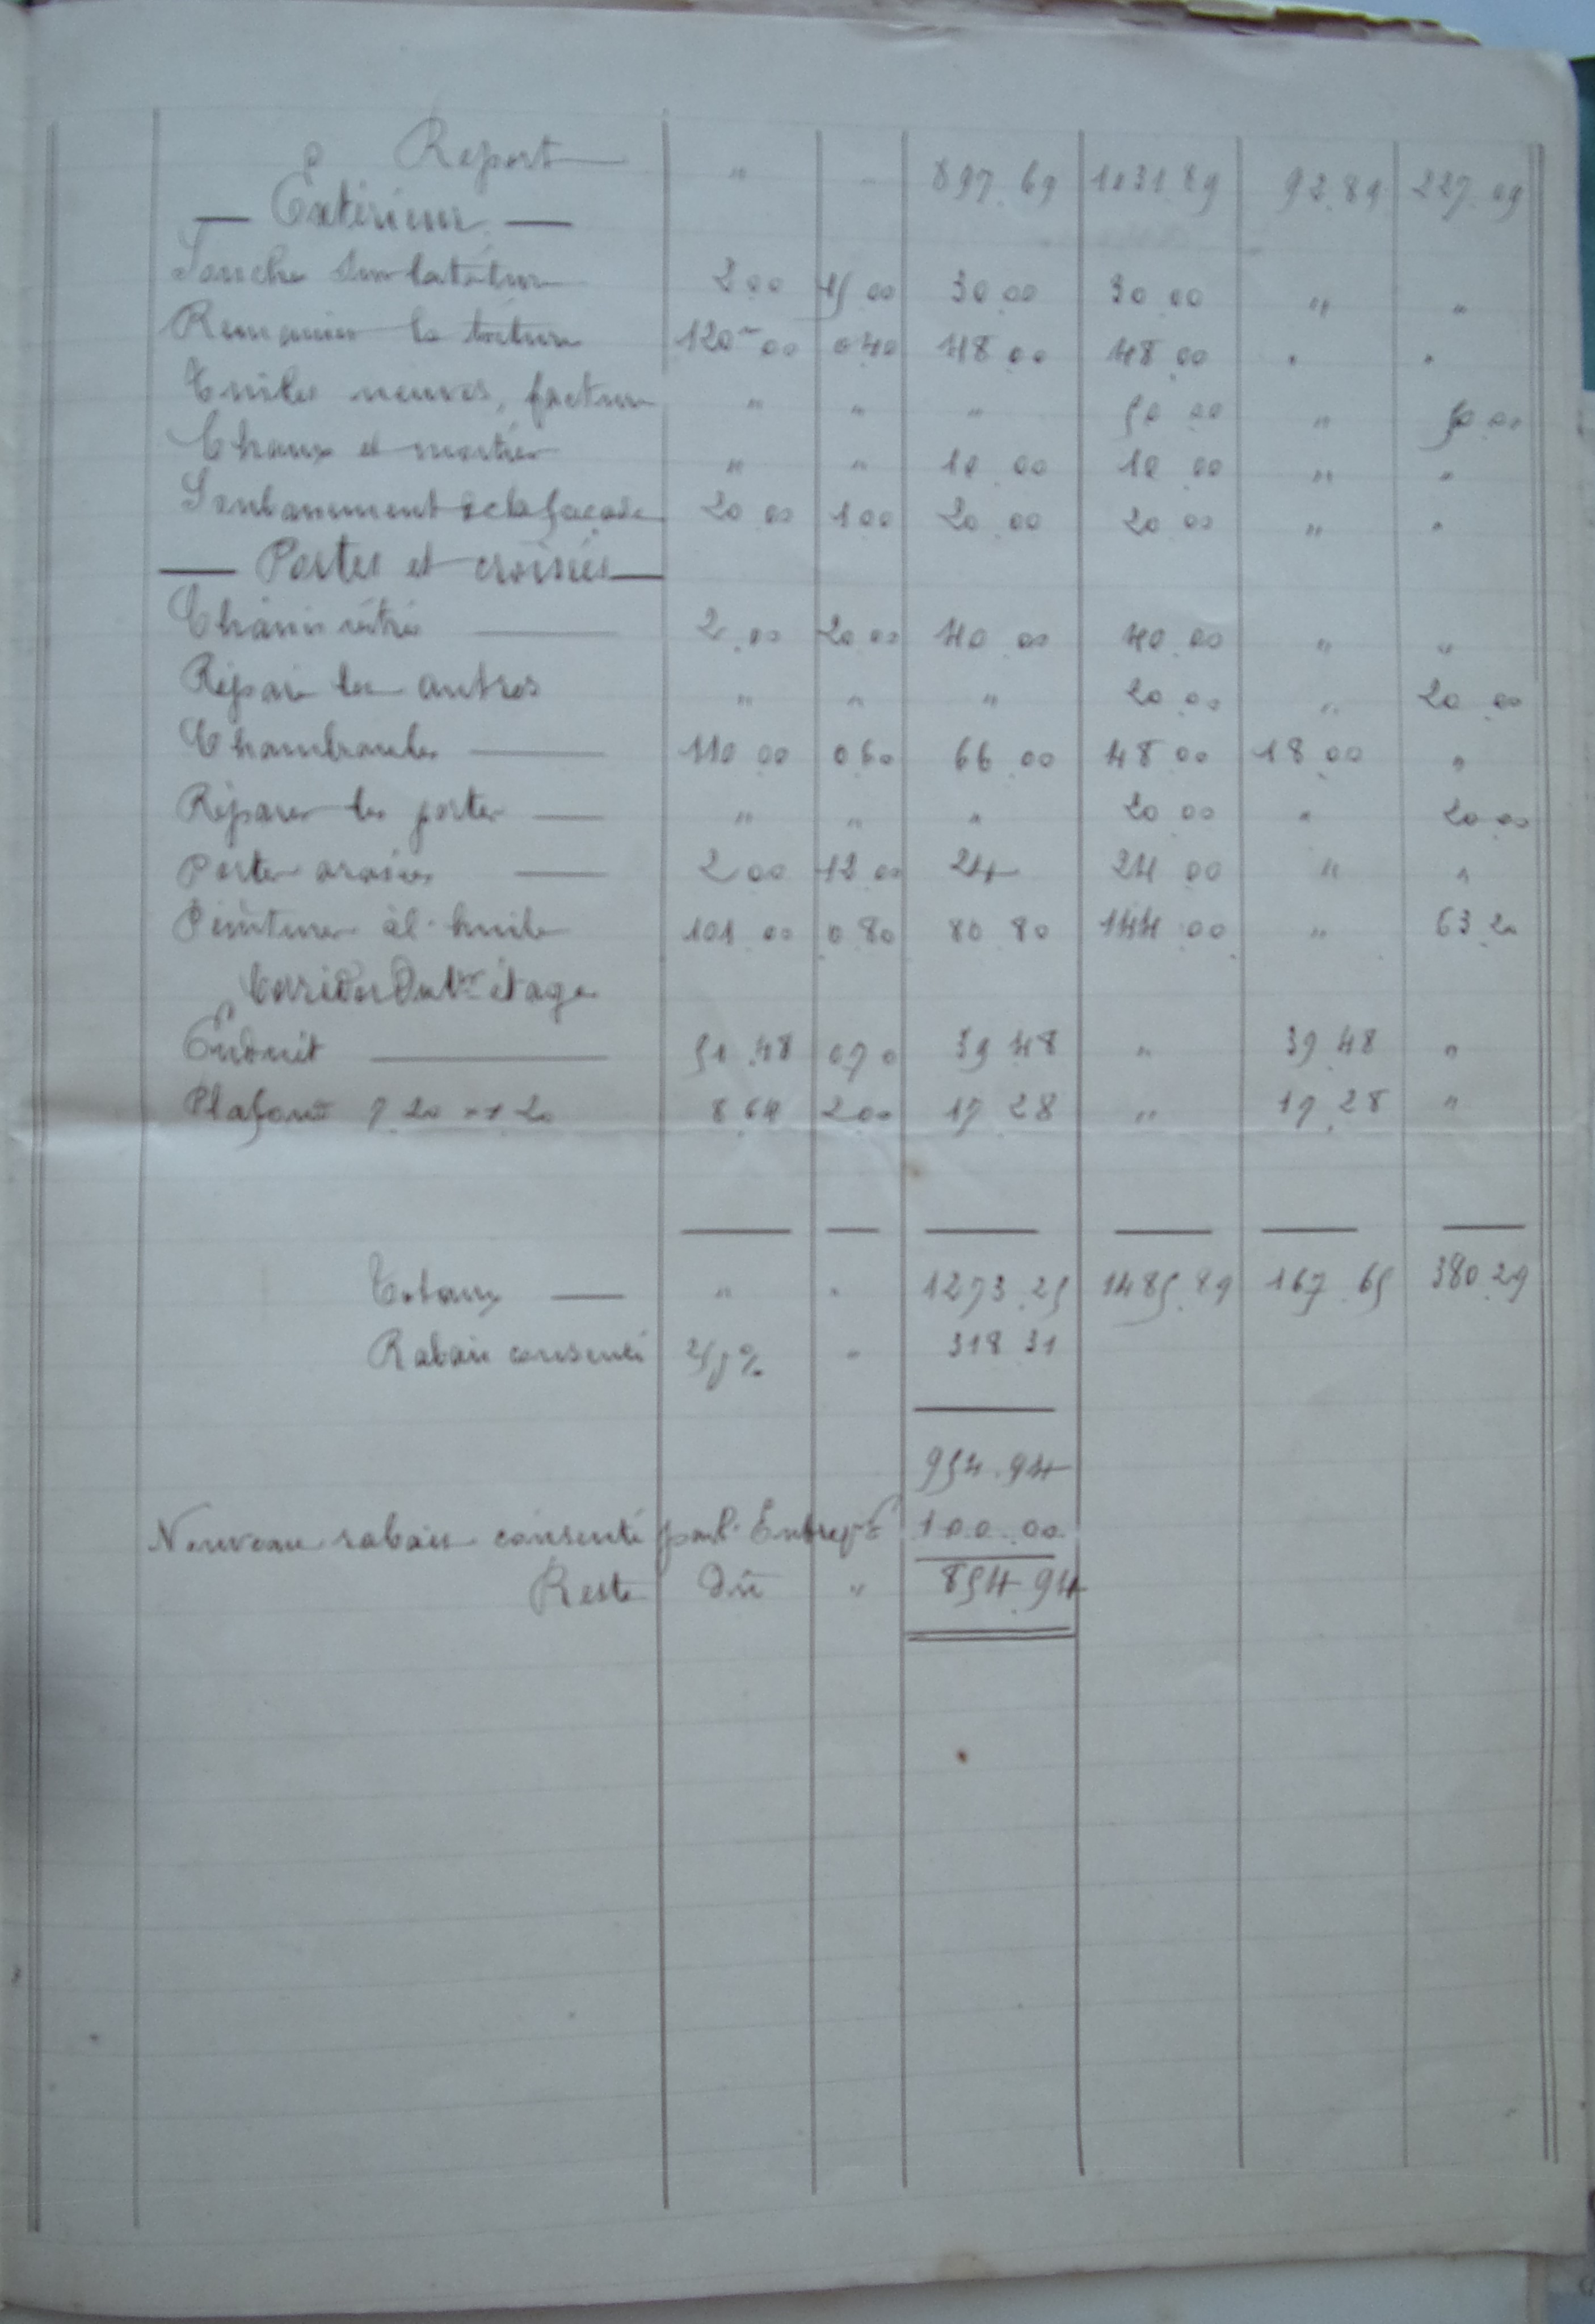 Report " " 897.69 1031.89 92.89 227.09
— Extérieur —
Souche sur la toiture 2 00 15 00 30 00 30 00 " "
Remanier la toiture 120 m 00 0 40 48 00 48 00 " "
Tuiles neuves, facture " " " 50 00 " 50 00
Chaux et mortier " " 10 00 10 00 " "
Soubassement de la façade 20 00 1 00 20 00 20 00 " "
— Portes et croisées —
Châssis vitrés — 2.00 20 00 40 00 40.00 " "
Réparé les autres " " " 20 00 " 20 00
Chambranles — 110 00 0 60 66 00 48 00 18 00 "
Réparer les portes — " " " 20 00 " 20 00
Portes croisées — 2 00 12 00 24 24 00 " "
Peinture à l'huile 101 00 0 80 80 80 144 00 " 63 20
Corridor du 1er étage
Enduit — 51.48 0 70 39 48 " 39 48 "
Plafond 7.20 × 1 20 8 64 2 00 17 28 " 17.28 "
Totaux — " " 1273.25 1485.89 167.65 380.29
Rabais consenti 25 % " 318 31
954.94
Nouveau rabais consenti par l'Entrepr 100.00
Reste dû " 854.94